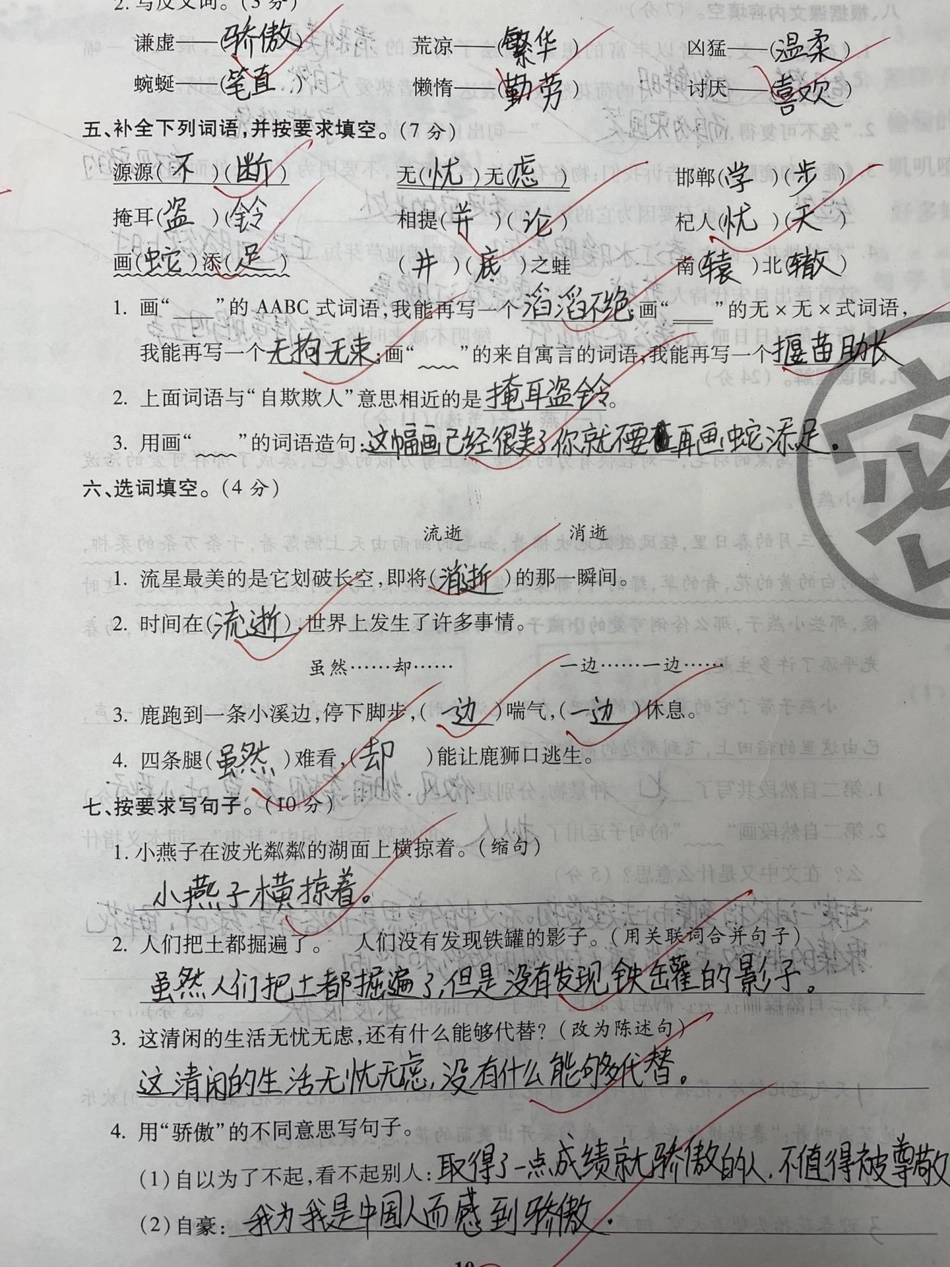 2. 写反义词。(3 分)
谦虚——(骄傲) 荒凉——(繁华) 凶猛——(温柔)
蜿蜒——(笔直) 懒惰——(勤劳) 讨厌——(喜欢)
五、补全下列词语,并按要求填空。(7 分)
源源(不)(断) 无(忧)无(虑) 邯郸(学)(步)
掩耳(盗)(铃) 相提(并)(论) 杞人(忧)(天)
画(蛇)添(足) (井)(底)之蛙 南(辕)北(辙)
1. 画“____”的 AABC 式词语,我能再写一个滔滔不绝;画“____”的无×无×式词语,
我能再写一个无拘无束;画“____”的来自寓言的词语,我能再写一个揠苗助长。
2. 上面词语与“自欺欺人”意思相近的是掩耳盗铃。
3. 用画“____”的词语造句:这幅画已经很美了你就不要再画蛇添足。
六、选词填空。(4 分)
流逝 消逝
1. 流星最美的是它划破长空,即将(消逝)的那一瞬间。
2. 时间在(流逝),世界上发生了许多事情。
虽然……却…… 一边……一边……
3. 鹿跑到一条小溪边,停下脚步,(一边)喘气,(一边)休息。
4. 四条腿(虽然)难看,(却)能让鹿狮口逃生。
七、按要求写句子。(10 分)
1. 小燕子在波光粼粼的湖面上横掠着。(缩句)
小燕子横掠着。
2. 人们把土都掘遍了。 人们没有发现铁罐的影子。(用关联词合并句子)
虽然人们把土都掘遍了,但是没有发现铁罐的影子。
3. 这清闲的生活无忧无虑,还有什么能够代替?(改为陈述句)
这清闲的生活无忧无虑,没有什么能够代替。
4. 用“骄傲”的不同意思写句子。
(1)自以为了不起,看不起别人:取得了一点成绩就骄傲的人,不值得被尊敬
(2)自豪:我为我是中国人而感到骄傲.
密